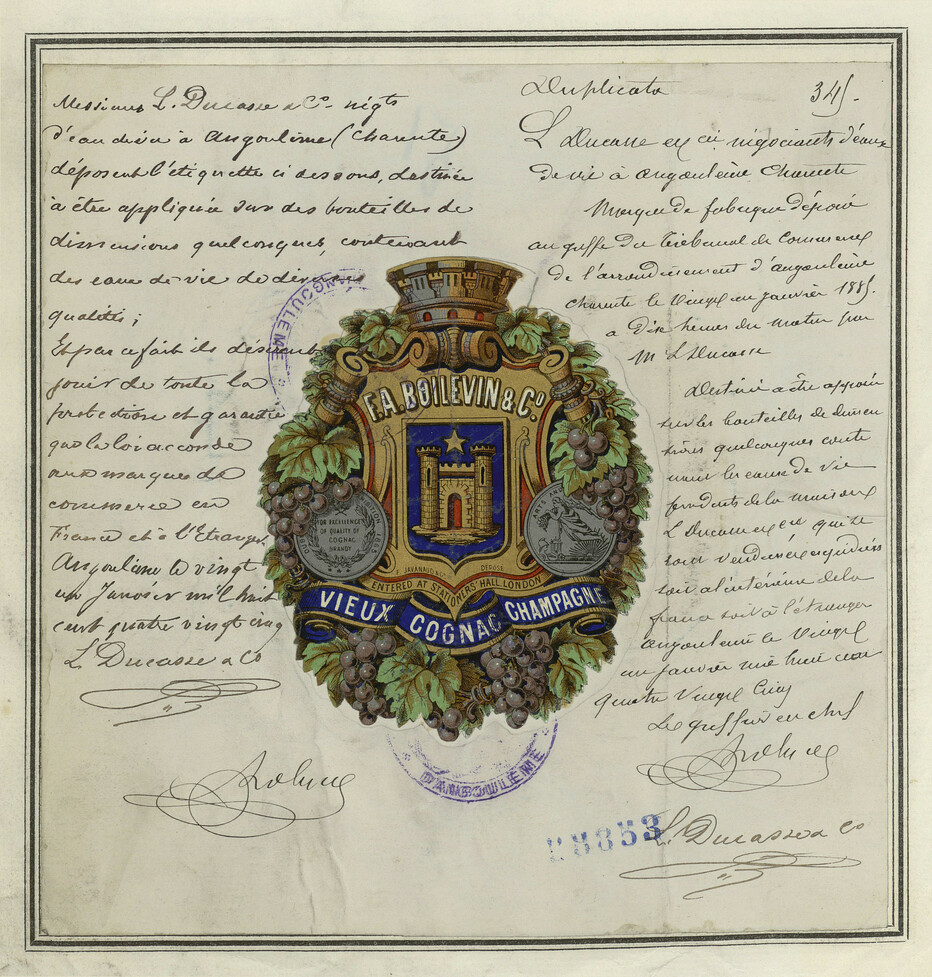 Messieurs L. Ducasse & Co. négts
d'eau de vie à Angoulême (Charente)
déposent l'étiquette ci dessous, destinée
à être appliquée sur des bouteilles de
dimensions quelconques, contenant
des eaux de vie de diverses
qualités;
Et par ce fait ils désirent
jouir de toute la
protection et garantie
que la loi accorde
aux marques de
commerce en
France et à l'Etranger.
Angoulême le vingt
un Janvier mil huit
cent quatre vingt cinq
L. Ducasse & Co
ANGOULEME
F. A. BOILEVIN & Co.
FOR EXCELLENCE
OF QUALITY OF
COGNAC
BRANDY
ARTS AN
DÉPOSÉ
ENTERED AT STATIONERS' HALL. LONDON
VIEUX COGNAC CHAMPAGNE
D'ANGOULEME
Duplicata
345.
L Ducasse et Cie négociants d'eaux
de vie à Angoulême Charente
Marque de fabrique déposée
au greffe du Tribunal de Commerce
de l'arrondissement d'Angoulême
Charente le vingt un janvier 1885.
a dix heures du matin par
M L Ducasse
Destinée a être apposée
sur les bouteilles de dimen
sions quelconques conte
nant les eaux de vie
produits de la maison
L Ducasse et Cie qu'ils
soient vendus et expédiés
soit a l'intérieur de la
france soit à l'étranger
Angoulême le vingt
un janvier mil huit cent
quatre vingt cinq
Le greffier en chef
8853
L. Ducasse & Co